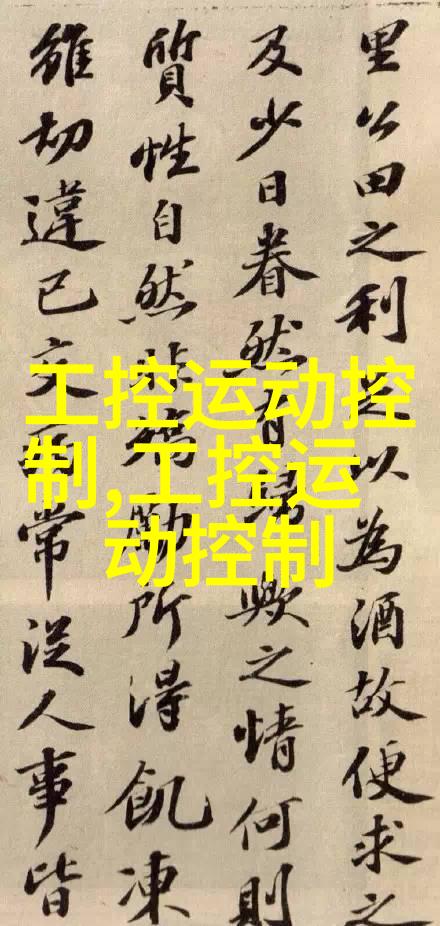 里公田之利足以為酒故便求之
及少日眷然有歸歟之情何則
質性自然非矯勵所得飢凍
雖切違己交病常從人事皆
工控运动控
制,工控运
动控制